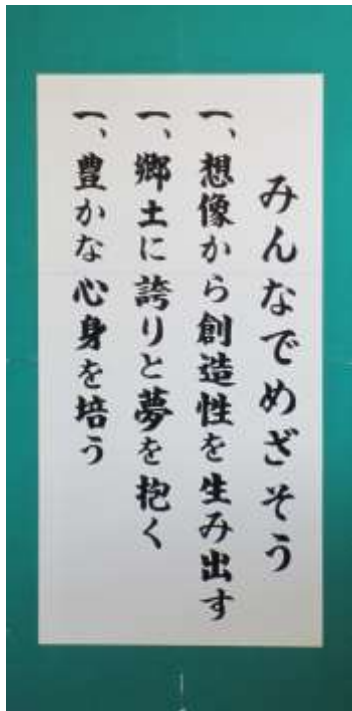 みんなでめざそう
一、想像から創造性を生み出す
一、郷土に誇りと夢を抱く
一、豊かな心身を培う